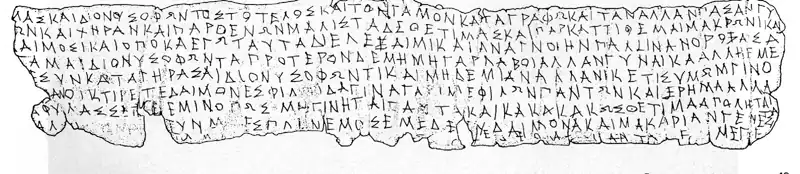 ΜΑΣΚΑΙΔΙΟΝΥΣΟΦΩΝΤΟΣΤΟΤΕΛΟΣΚΑΙΤΟΝΓΑΜΟΝΚΑΤΑΓΡΑΦΩΚΑΙΤΑΝΑΛΛΑΝΠΑΣΑΝΓΥ
ΩΝΚΑΙΧΗΡΑΝΚΑΙΠΑΡΘΕΝΩΝΜΑΛΙΣΤΑΔΕΘΕΤΙΜΑΣΚΑΙΠΑΡΚΑΤΤΙΘΕΜΑΙΜΑΚΡΩΝΙΚΑΙ
ΔΑΙΜΟΣΙΚΑΙΟΠΟΚΑΕΓΩΤΑΥΤΑΔΙΕΛΕΞΑΙΜΙΚΑΙΑΝΑΓΝΟΙΗΝΠΑΛΙΝΑΝΟΡΟΞΑΣΑ
ΓΑΜΑΙΔΙΟΝΥΣΟΦΩΝΤΑΠΡΟΤΕΡΟΝΔΕΜΗΜΗΓΑΡΛΑΒΟΙΑΛΛΑΝΓΥΝΑΙΚΑΑΛΛΗΕΜΕ
ΕΣΥΝΚΑΤΑΓΗΡΑΣΑΙΔΙΟΝΥΣΟΦΩΝΤΙΚΑΙΜΗΔΕΜΙΑΝΑΛΛΑΝΙΚΕΤΙΣΥΜΩΜΓΙΝΟ
ΑΝΟΙΚΤΙΡΕΤΕΔΑΙΜΟΝΕΣΦΙΛΟΙΔΑΓΙΝΑΓΑΡΙΜΕΦΙΛΩΝΠΑΝΤΩΝΚΑΙΕΡΗΜΑΑΛΛΑ
ΦΥΛΑΣΣΕΤΕΕΜΙΝΟΠΩΣΜΗΓΙΝΗΤΑΙΤΑΥΤΑΚΑΙΚΑΚΑΚΑΚΩΣΘΕΤΙΜΑΑΠΟΛΗΤΑΙ
ΑΛ ΥΝΜ ΕΣΠΛΗΝΕΜΟΣΕΜΕΔΕ ΕΥΔΑΙΜΟΝΑΚΑΙΜΑΚΑΡΙΑΝΓΕΝΕΣ
ΜΕΓΕ